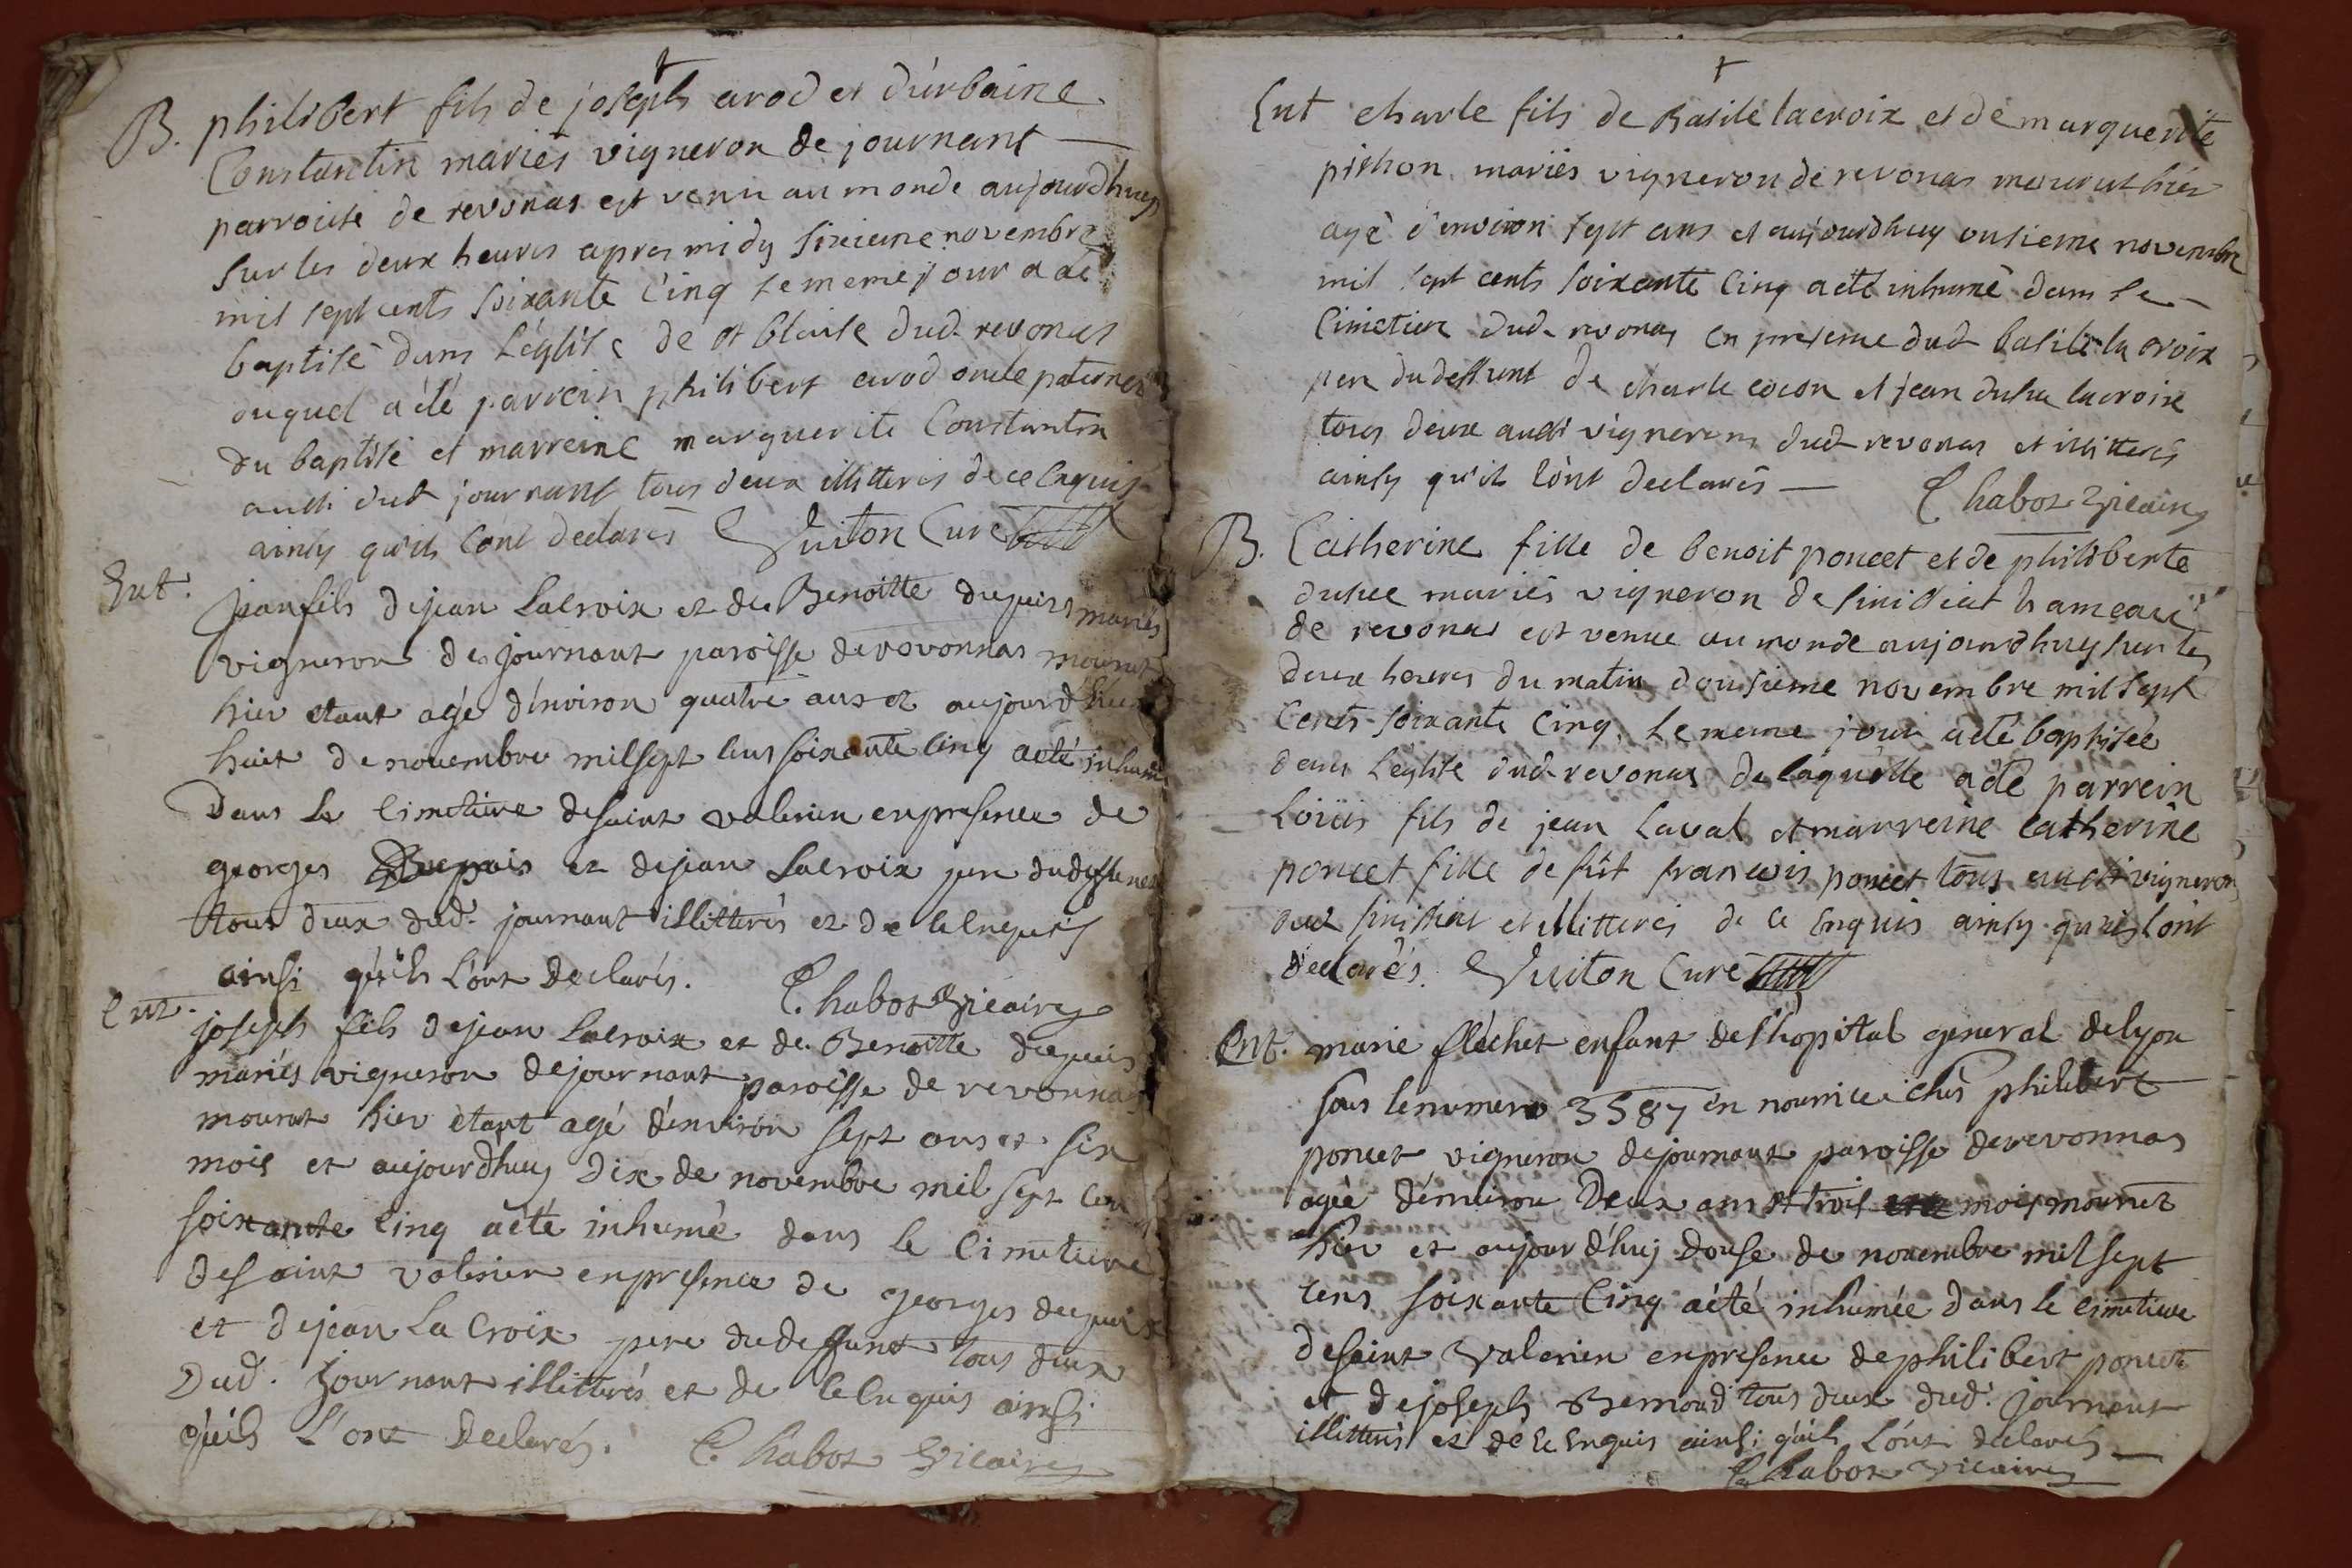 B. philibert fils de joseph arod et d'urbaine
Constantin mariés vigneron de journant
parroisse de revonas est venu au monde aujourdhuy
sur les deux heures apres midy sixieme novembre
mil sept cents soixante cinq le meme jour a été
baptisé dans L'église de st blaise dud. revonas
auquel a été parrein philibert arod oncle paternel
du baptisé et marreine marguerite Constantin
aussi dud. journant tous deux illitterés de ce enquis
ainsy qu'ils l'ont declarés Vuiton Curé
Ent. jean fils de jean Lacroix et de Benoitte dupuis mariés
vigneron de journant paroisse de revonnas mourut
hier etant agé d'environ quatre ans et aujourdhuy
huit de novembre mil sept cens soixante cinq a eté inhumé
Dans le cimetiere de saint valerien en presence de
georges Dupuis et de jean Lacroix pere du deffunct
tous deux dud. journant illitterés et de ce enquis
ainsi qu'ils l'ont declarés. Chabot vicaire
Ent. joseph fils de jean Lacroix et de Benoitte dupuis
mariés vigneron de journant paroisse de revonnas
mourut hier etant agé d'environ sept ans et six
mois et aujourdhuy dix de novembre mil sept cens
soixante cinq a eté inhumé dans le cimetiere
de saint valerien en presence de georges dupuis
et de jean La Croix pere du deffunt tous deux
Dud. journant illitterés et de ce enquis ainsi
qu'ils l'ont Declarés. Chabot vicaire
Ent charle fils de Basile lacroix et de marguerite
pichon mariés vigneron de revonas mourut hier
agé d'environ sept ans et aujourdhuy onsieme novembre
mil sept cents soixante cinq a eté inhumé dans le
cimetiere dud. revonas en presence dud. basile la croix
pere du deffunt de charle cocon et jean lacroix
tous deux aussi vignerons dud. revonas et illitterés
ainsy qu'ils l'ont declarés Chabot vicaire
B. Catherine fille de benoit poncet et de philiberte
mariés vigneron de sinissiat hameau
de revonas est venue au monde aujourdhuy sur les
deux heures du matin dousieme novembre mil sept
cents soixante cinq, le meme jour a eté baptisée
dans L'église dud. revonas de laquelle a été parrein
Loüis fils de jean Laval et marreine catherine
poncet fille de fût francois poncet tous aussi vignerons
dud. sinissiat et illitterés de ce enquis ainsy qu'ils l'ont
declarés. Vuiton Curé
Ent. marie fléchet enfant de l'hopital general de lyon
sous le numero 3587 en nourrice chés philibert
poncet vigneron de journant paroisse de revonnas
agée d'environ Deux ans et trois mois mourut
hier et aujourd'huy douse de novembre mil sept
cens soixante cinq a été inhumée dans le cimetiere
de saint valerien en presence de philibert poncet
et de joseph Bernoud tous deux dud. journant
illitterés et de ce enquis ainsi qu'ils l'ont declarés
Chabot vicaire